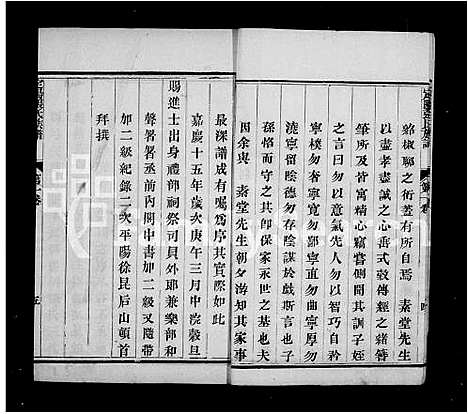 蛉椒聊之衍蓋有所自焉 素堂先生
以盡孝盡誠之心垂式穀傳經之緒
筆所及皆寓精心竊嘗側聞其訓子姪
之言曰勿以意氣先人勿以智巧自矜
寧樸勿奢寧寬勿鄙寧直勿曲寧厚勿
漓寧留陰德勿存陰謀於戲斯言也子
孫恪而守之其卽保家永世之基也夫
因余與 素堂先生朝夕游知其家事
最深譜成有囑爲序其實如此
嘉慶十五年歲次庚午三月中浣穀旦
賜進士出身禮部祠祭司員外兼樂部和
聲署署丞前內閣中書加二級又隨帶
加二級紀錄二次平陽徐昆后山頓首
拜撰
五